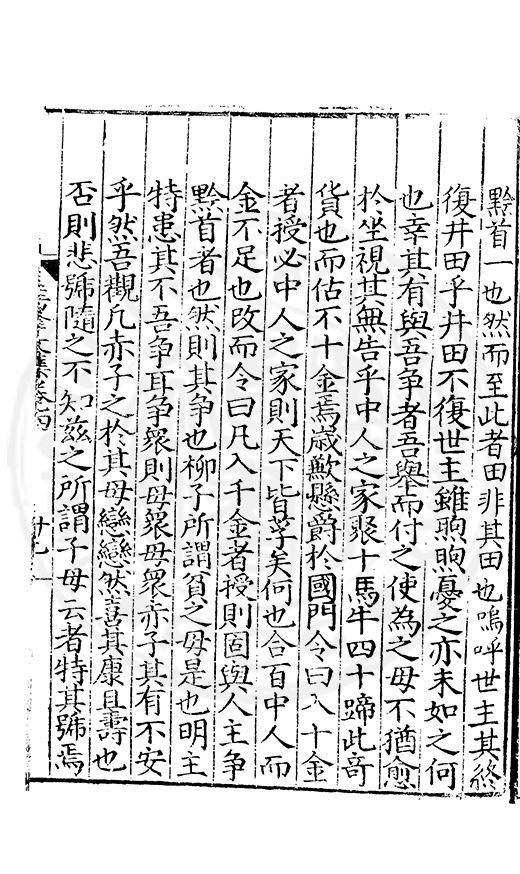 黔首一也然而至此者田非其田也嗚呼世主其終
復井田乎井田不復世主雖煦煦憂之亦未如之何
也幸其有與吾争者吾舉而付之使為之毋不猶愈
於坐視其無告乎中人之家聚十馬牛四十蹄此竒
貨也而估不十金焉歲歉懸爵於國門令曰入十金
者授必中人之家則天下皆莩矣何也合百中人而
金不足也改而令曰凡入千金者授則固與人主争
黔首者也然則其争也柳子所謂貧之毋是也明主
特患其不吾争耳争衆則毋衆毋衆赤子其有不安
乎然吾觀凡赤子之於其毋戀戀然善其康且壽也
否則悲號隨之不知兹之所謂子毋云者特其號焉